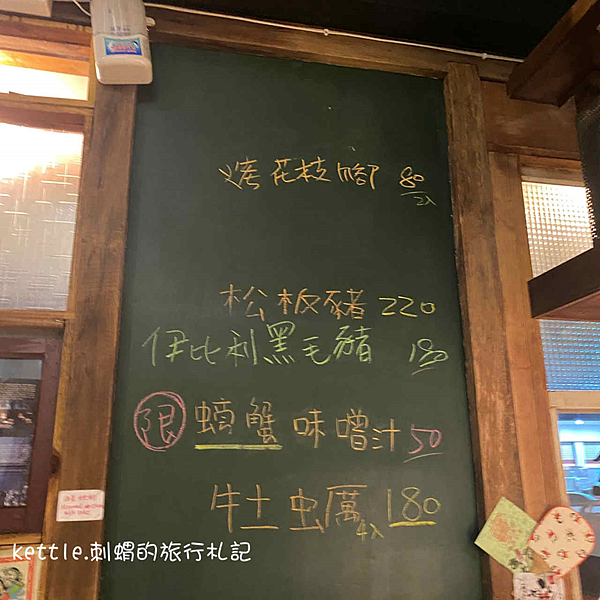 烤花枝腳 80/2入
松板豬 220
伊比利黑毛豬 180
限 螃蟹味噌汁 50
牡蠣 4入 180
kettle.刺蝟的旅行札記